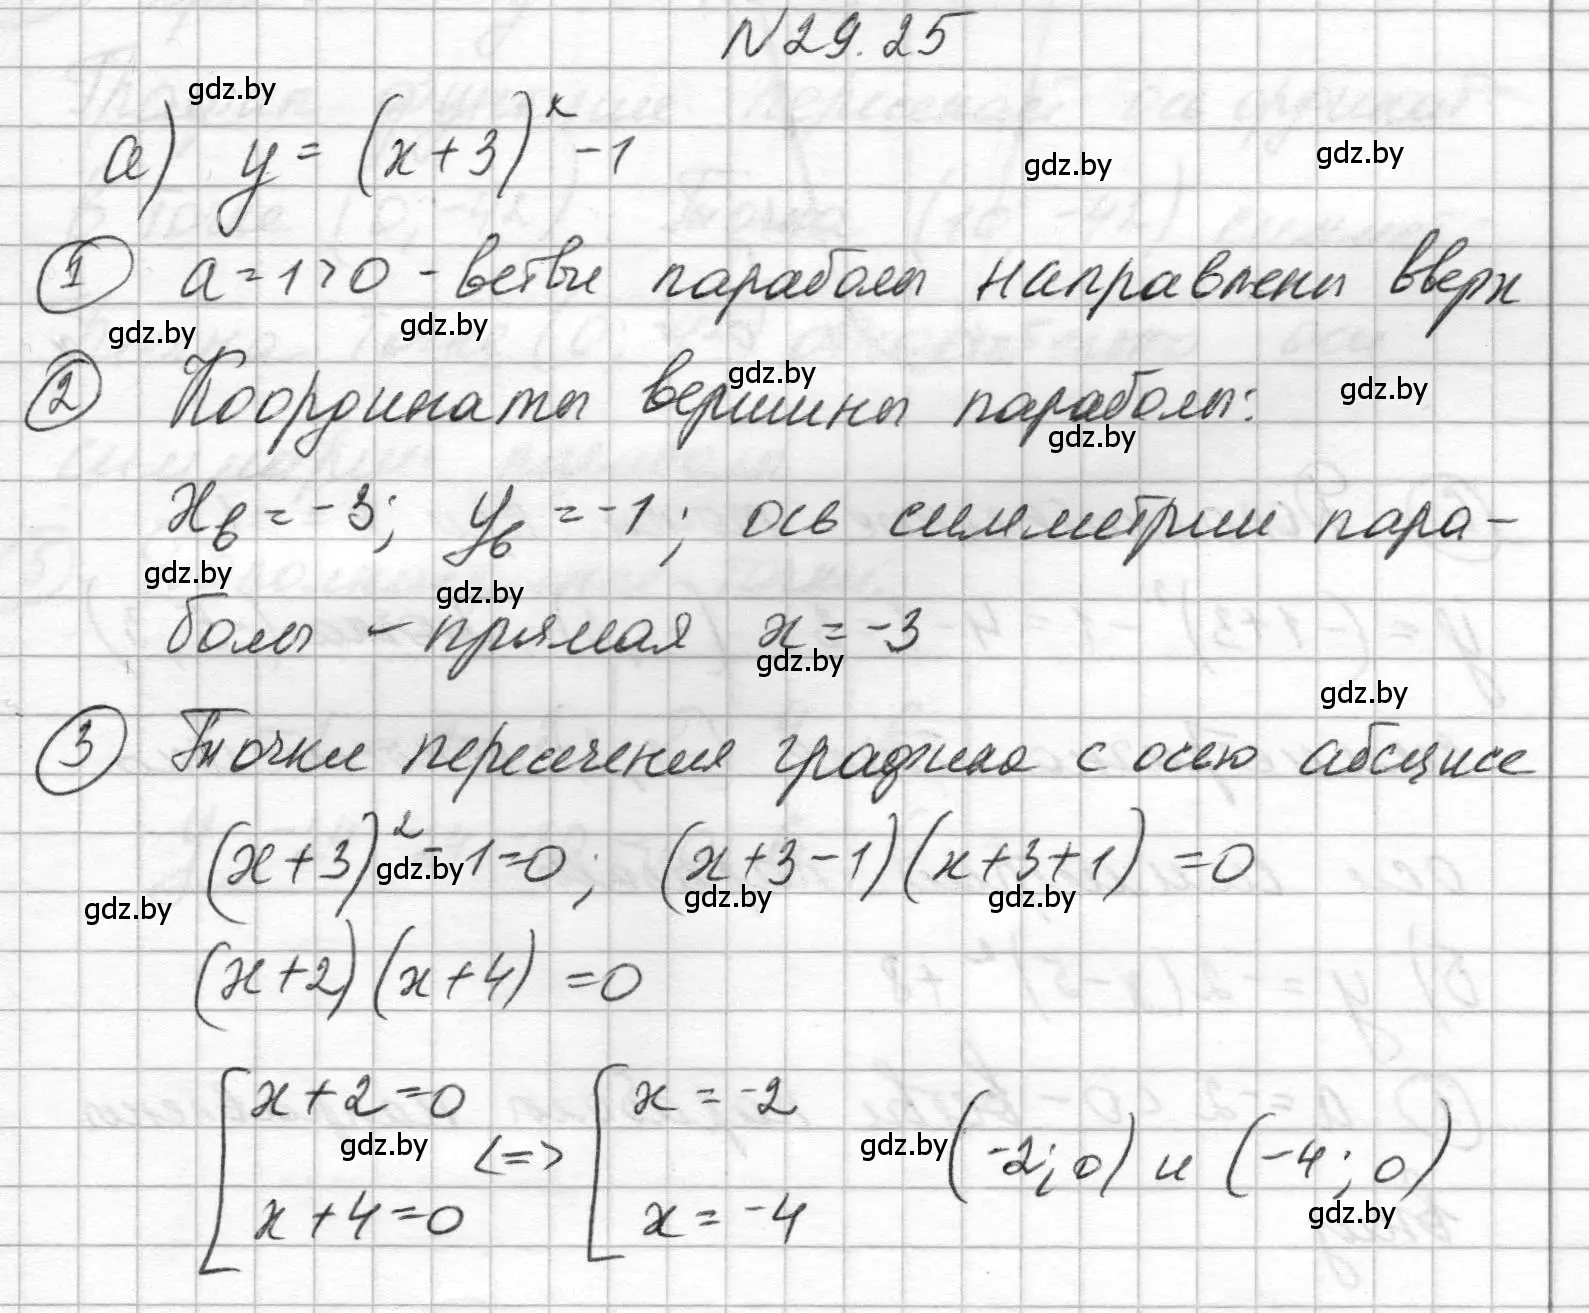 N29.25
gdz.by
а) y = (x+3)² -1
gdz.by
gdz.by
① a=1>0 - ветви параболы направлены вверх
gdz.by
gdz.by
② Координаты вершины параболы:
gdz.by
gdz.by
gdz.by
xв = -3; yв = -1; ось симметрии пара-
gdz.by
gdz.by
болы - прямая x = -3
gdz.by
gdz.by
③ Точки пересечения графика с осью абсцисс
(x+3)² - 1 = 0; (x+3-1)(x+3+1) = 0
gdz.by
gdz.by
gdz.by
gdz.by
(x+2)(x+4) = 0
[x+2=0 <=> [x = -2
gdz.by
gdz.by
(-2; 0) и (-4; 0)
x+4=0 x = -4
gdz.by